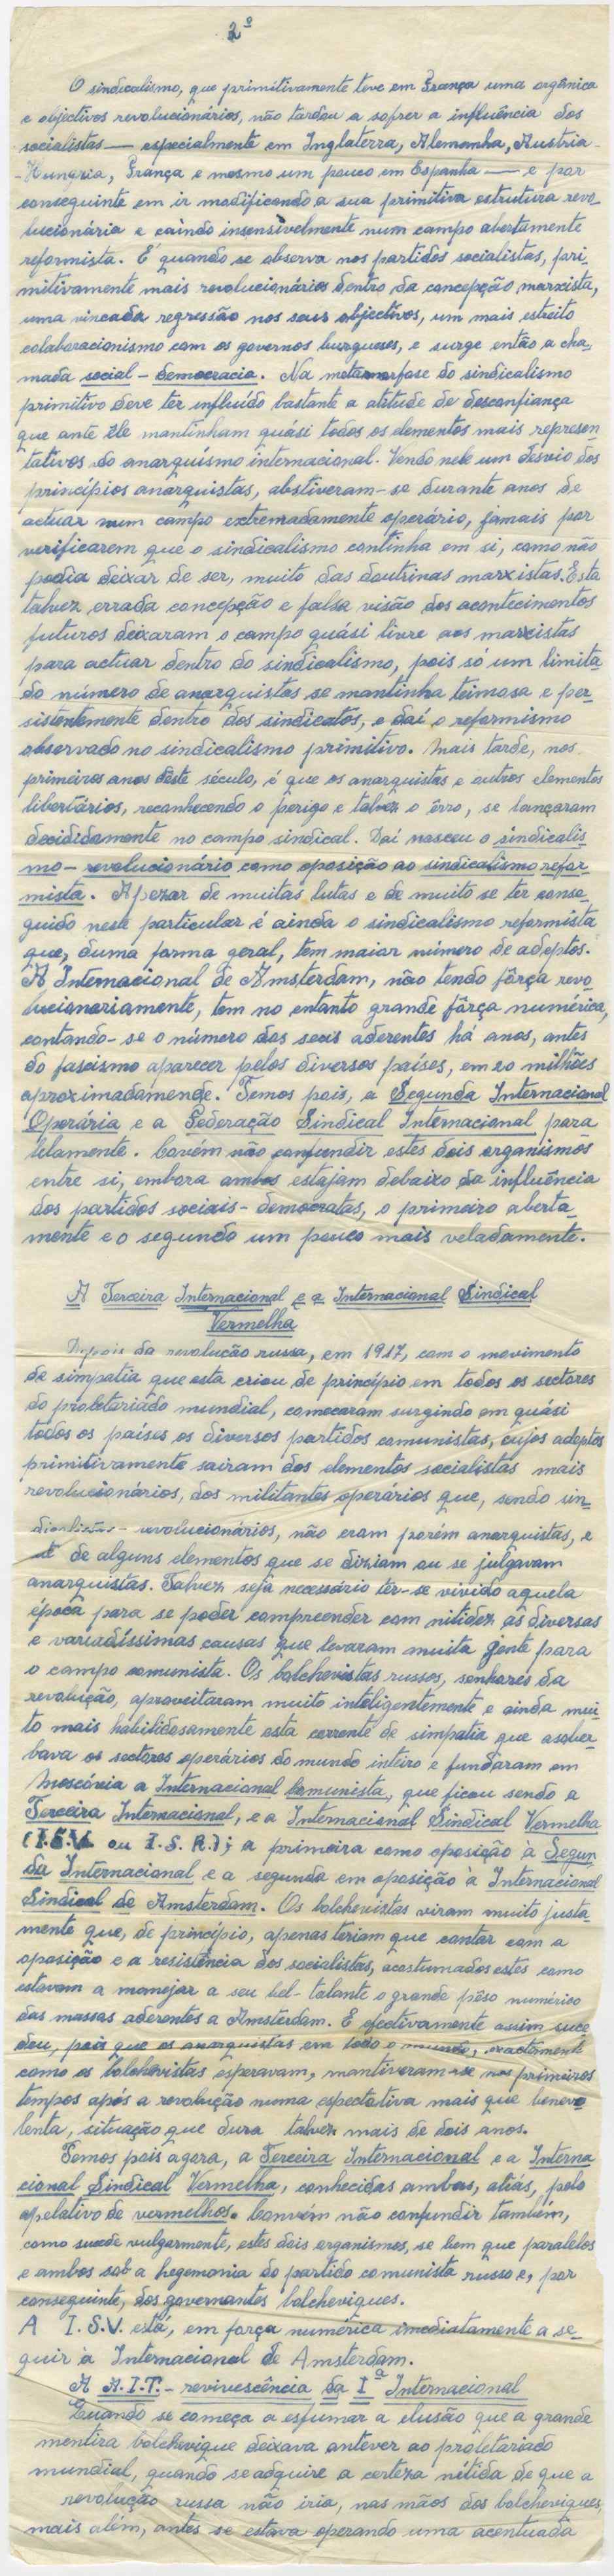 2º
O sindicalismo, que primitivamente teve em França uma orgânica
e objectivos revolucionários, não tardou a sofrer a influência dos
socialistas — especialmente em Inglaterra, Alemanha, Austria-
-Hungria, França e mesmo um pouco em Espanha — e por
conseguinte em ir modificando a sua primitiva estrutura revo-
lucionária e caindo insensìvelmente num campo abertamente
reformista. É quando se observa nos partidos socialistas, pri-
mitivamente mais revolucionários dentro da concepção marxista,
uma vincada regressão nos seus objectivos, um mais estreito
colaboracionismo com os governos burgueses, e surge então a cha-
mada social-democracia. Na metamorfose do sindicalismo
primitivo deve ter influído bastante a atitude de desconfiança
que ante êle mantinham quási todos os elementos mais represen-
tativos do anarquísmo internacional. Vendo nele um desvio dos
princípios anarquistas, abstiveram-se durante anos de
actuar num campo extremadamente operário, jamais por
verificarem que o sindicalismo continha em si, como não
podia deixar de ser, muito das doutrinas marxistas. Esta
talvez errada concepção e falsa visão dos acontecimentos
futuros deixaram o campo quási livre aos marxistas
para actuar dentro do sindicalismo, pois só um limita-
do número de anarquistas se mantinha teimosa e per-
sistentemente dentro dos sindicatos, e daí o reformismo
observado no sindicalismo primitivo. Mais tarde, nos
primeiros anos dêste século, é que os anarquistas e outros elementos
libertários, reconhecendo o perigo e talvez o êrro, se lançaram
decididamente no campo sindical. Daí nasceu o sindicalis-
mo-revolucionário como oposição ao sindicalismo refor-
mista. Apezar de muitas lutas e de muito se ter conse-
guido neste particular é ainda o sindicalismo reformista
que, duma forma geral, tem maior número de adeptos.
A Internacional de Amsterdam, não tendo fôrça revo-
lucionariamente, tem no entanto grande fôrça numérica,
contando-se o número dos seus aderentes há anos, antes
do fascismo aparecer pelos diversos países, em 20 milhões
aproximadamende. Temos pois, a Segunda Internacional
Operária e a Federação Sindical Internacional para-
lelamente. Covém não confundir estes dois organismos
entre si, embora ambos estajam debaixo da influência
dos partidos sociais-democratas, o primeiro aberta-
mente e o segundo um pouco mais veladamente.
A Terceira Internacional e a Internacional Sindical
Vermelha
Depois da revolução russa, em 1917, com o movimento
de simpatia que esta criou de princípio em todos os sectores
do proletariado mundial, começaram surgindo em quási
todos os países os diversos partidos comunistas, cujos adeptos
primitivamente sairam dos elementos socialistas mais
revolucionários, dos militantes operários que, sendo sin-
dicalistas-revolucionários, não eram porém anarquistas, e
até de alguns elementos que se diziam ou se julgavam
anarquistas. Talvez seja necessário ter-se vivido aquela
época para se poder compreender com nitidez as diversas
e variadíssimas causas que levaram muita gente para
o campo comunista. Os bolchevistas russos, senhores da
revolução, aproveitaram muito inteligentemente e ainda mui-
to mais habilidosamente esta corrente de simpatia que assober-
bava os sectores operários do mundo inteiro e fundaram em
Moscóvia a Internacional Comunista, que ficou sendo a
Terceira Internacional, e a Internacional Sindical Vermelha
(I.S.V. ou I.S.R.); a primeira como oposição à Segun-
da Internacional e a segunda em oposição à Internacional
Sindical de Amsterdam. Os bolchevistas viram muito justa-
mente que, de princípio, apenas teriam que contar com a
oposição e a resistência dos socialistas, acostumados estes como
estavam a manejar a seu bel-talante o grande pêso numérico
das massas aderentes a Amsterdam. E efectivamente assim suce-
deu, pois que os anarquistas em todo o mundo, exactamente
como os bolchevistas esperavam, mantiveram-se nos primeiros
tempos após a revolução numa espectativa mais que benevo-
lenta, situação que dura talvez mais de dois anos.
Temos pois agora, a Terceira Internacional e a Interna-
cional Sindical Vermelha, conhecidas ambas, aliás, pelo
apelativo de vermelhos. Convém não confundir também,
como sucede vulgarmente, estes dois organismos, se bem que paralelos
e ambos sob a hegemonia do partido comunista russo e, por
conseguinte, dos governantes bolcheviques.
A I.S.V. está, em força numérica imediatamente a se-
guir à Internacional de Amsterdam.
A A.I.T. - revivescência da Iª Internacional
Quando se começa a esfumar a elusão que a grande
mentira bolchevique deixava antever ao proletariado
mundial, quando se adquire a certeza nítida de que a
revolução russa não iria, nas mãos dos bolcheviques,
mais além, antes se estava operando uma acentuada